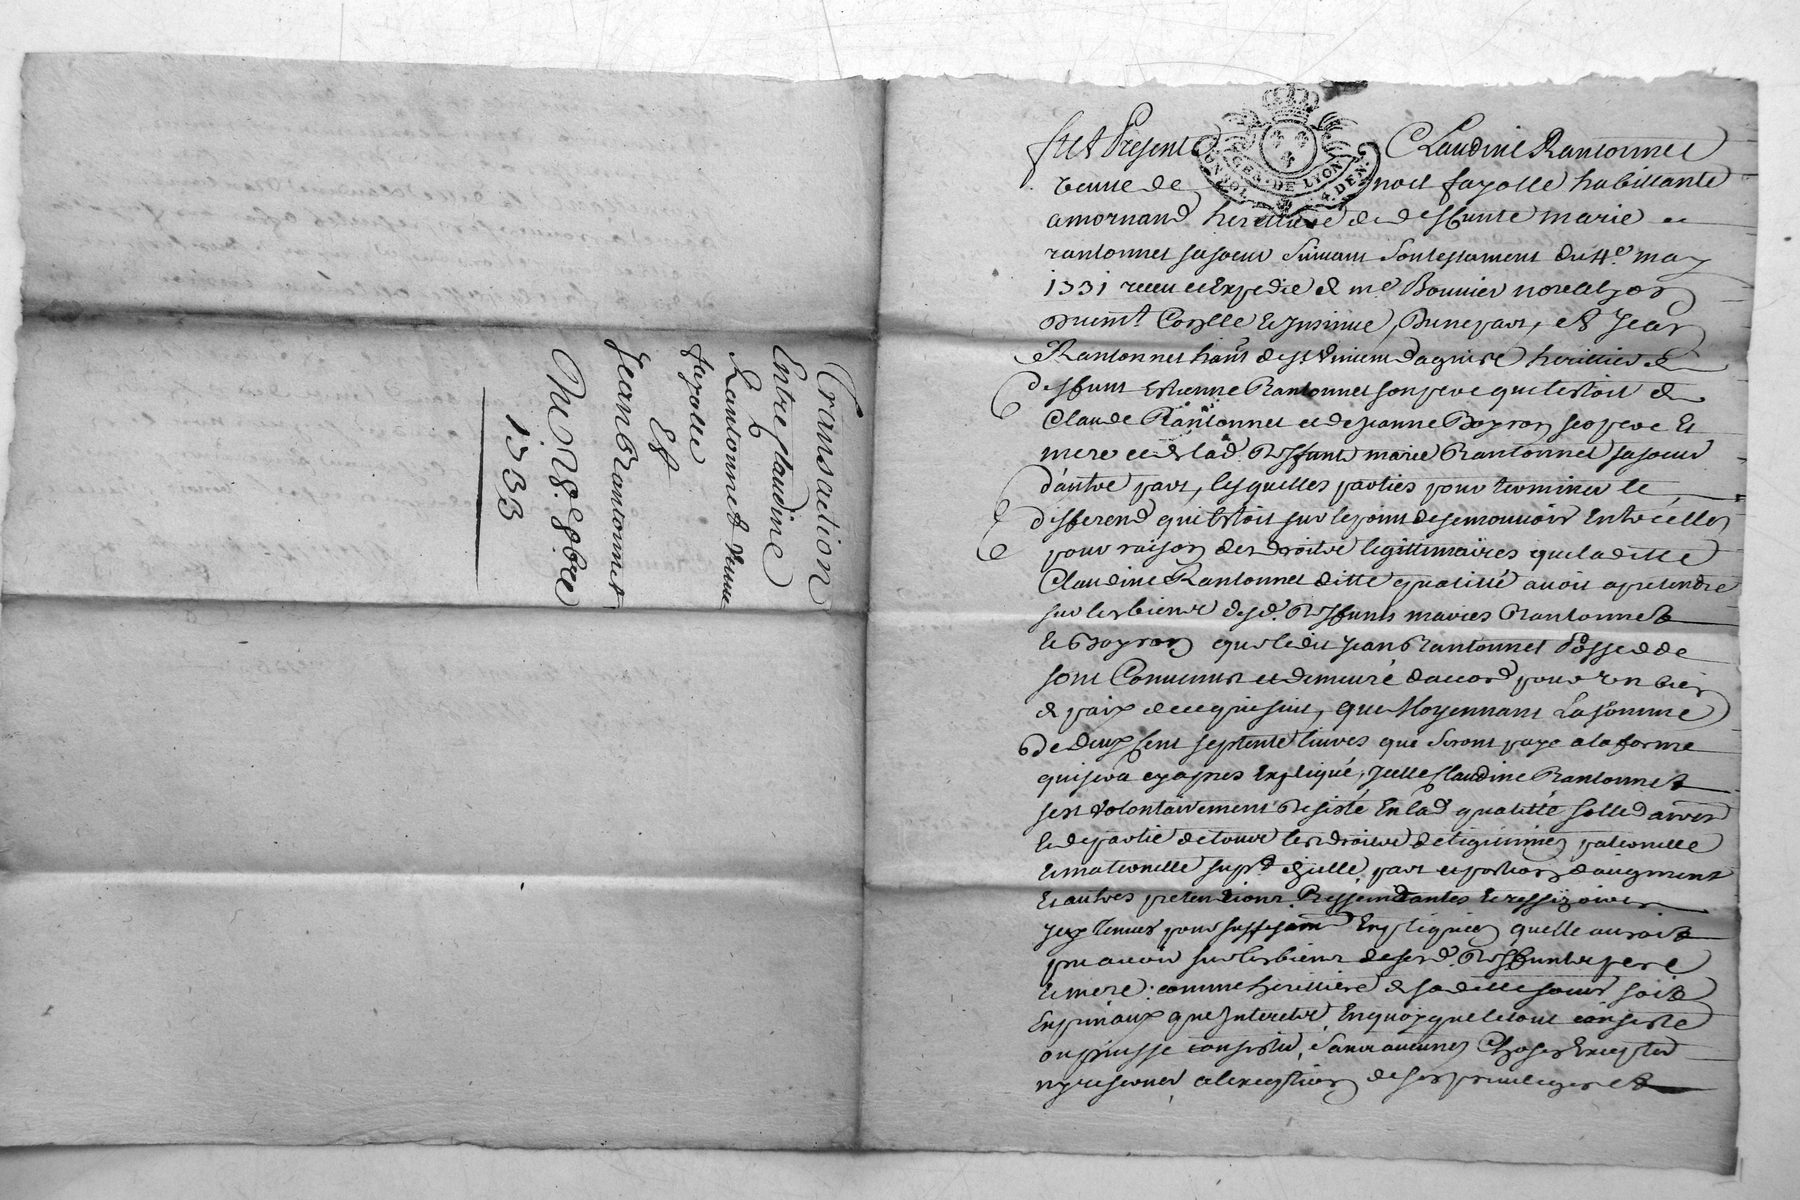 Transaction
Entre Claudine
Rantonnet veuve
fayolle
Et
Jean Rantonnet
Du 28e 9bre
1733
fut Presente Claudine Rantonnet
veuve de noit fayolle habittante
a mornand herittiere de deffunte marie
rantonnet sa soeur suivant son testament du 4e may
1731 receu et Expedie de me Bonnier notere
Controlle et Insinué, D'une part, et Jean
Rantonnet hant de st Vincent dagnire herittier de
deffunt Estienne Rantonnet son pere qui l'estoit de
Claude Rantonnet et de Jeanne Boyron ses pere et
mere et de lad. deffunte marie Rantonnet sa soeur
d'autre part, lesquelles parties pour terminer le
differend qui Estoit sur le point de se mouvoir Entre elles
pour raison des droits legittimaires que la ditte
Claudine Rantonnet ditte qualitté avoit a pretendre
sur les biens desd. deffunts maries Rantonnet
et Boyron que le dit Jean Rantonnet Possedde
sont Convenus et demeuré daccord pour un bien
de paix de ce qui suit, que Moyennant La somme
de deux Cent septente livres que seront paye a la forme
qui sera cy apres Expliqué, Icelle Claudine Rantonnet
sest volontairement desisté En lad qualitté
et departie de tous les droits de legitimes paternelle
et maternelle supd dicelle part et portion d'augment
et autres pretentions Ressindantes et ressizoires
Iceux tenus pour suffisamt Expliques quelle auroit
pu avoir sur les biens de sesd. deffunts pere
et mere comme herittiere de sa ditte soeur soit
En prinaux que Interets En quoy que le tout consiste
ou puisse consister, sans aucunes Choses Excepter
ny reserver a lexception de ses privileges et
GEN. DE LYON
4. DEN.